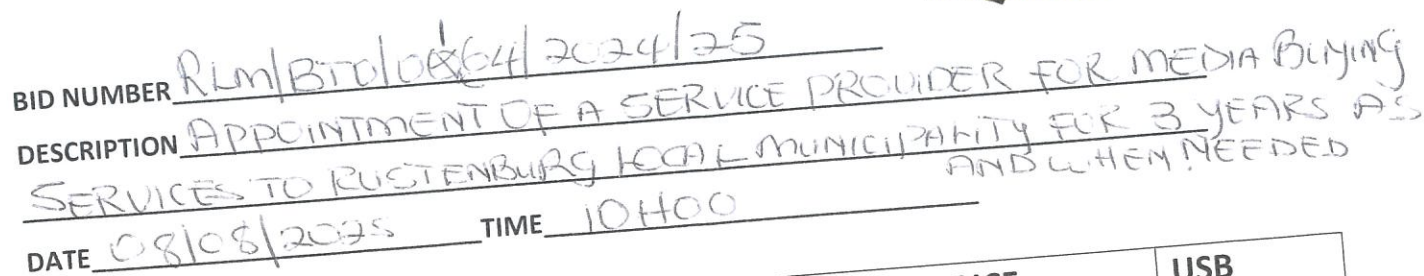 BID NUMBER RLM/BTO/0064/2024/25
DESCRIPTION APPOINTMENT OF A SERVICE PROVIDER FOR MEDIA BUYING
SERVICES TO RUSTENBURG LOCAL MUNICIPALITY FOR 3 YEARS AS
AND WHEN NEEDED
DATE 08/08/2025 TIME 10H00
USB